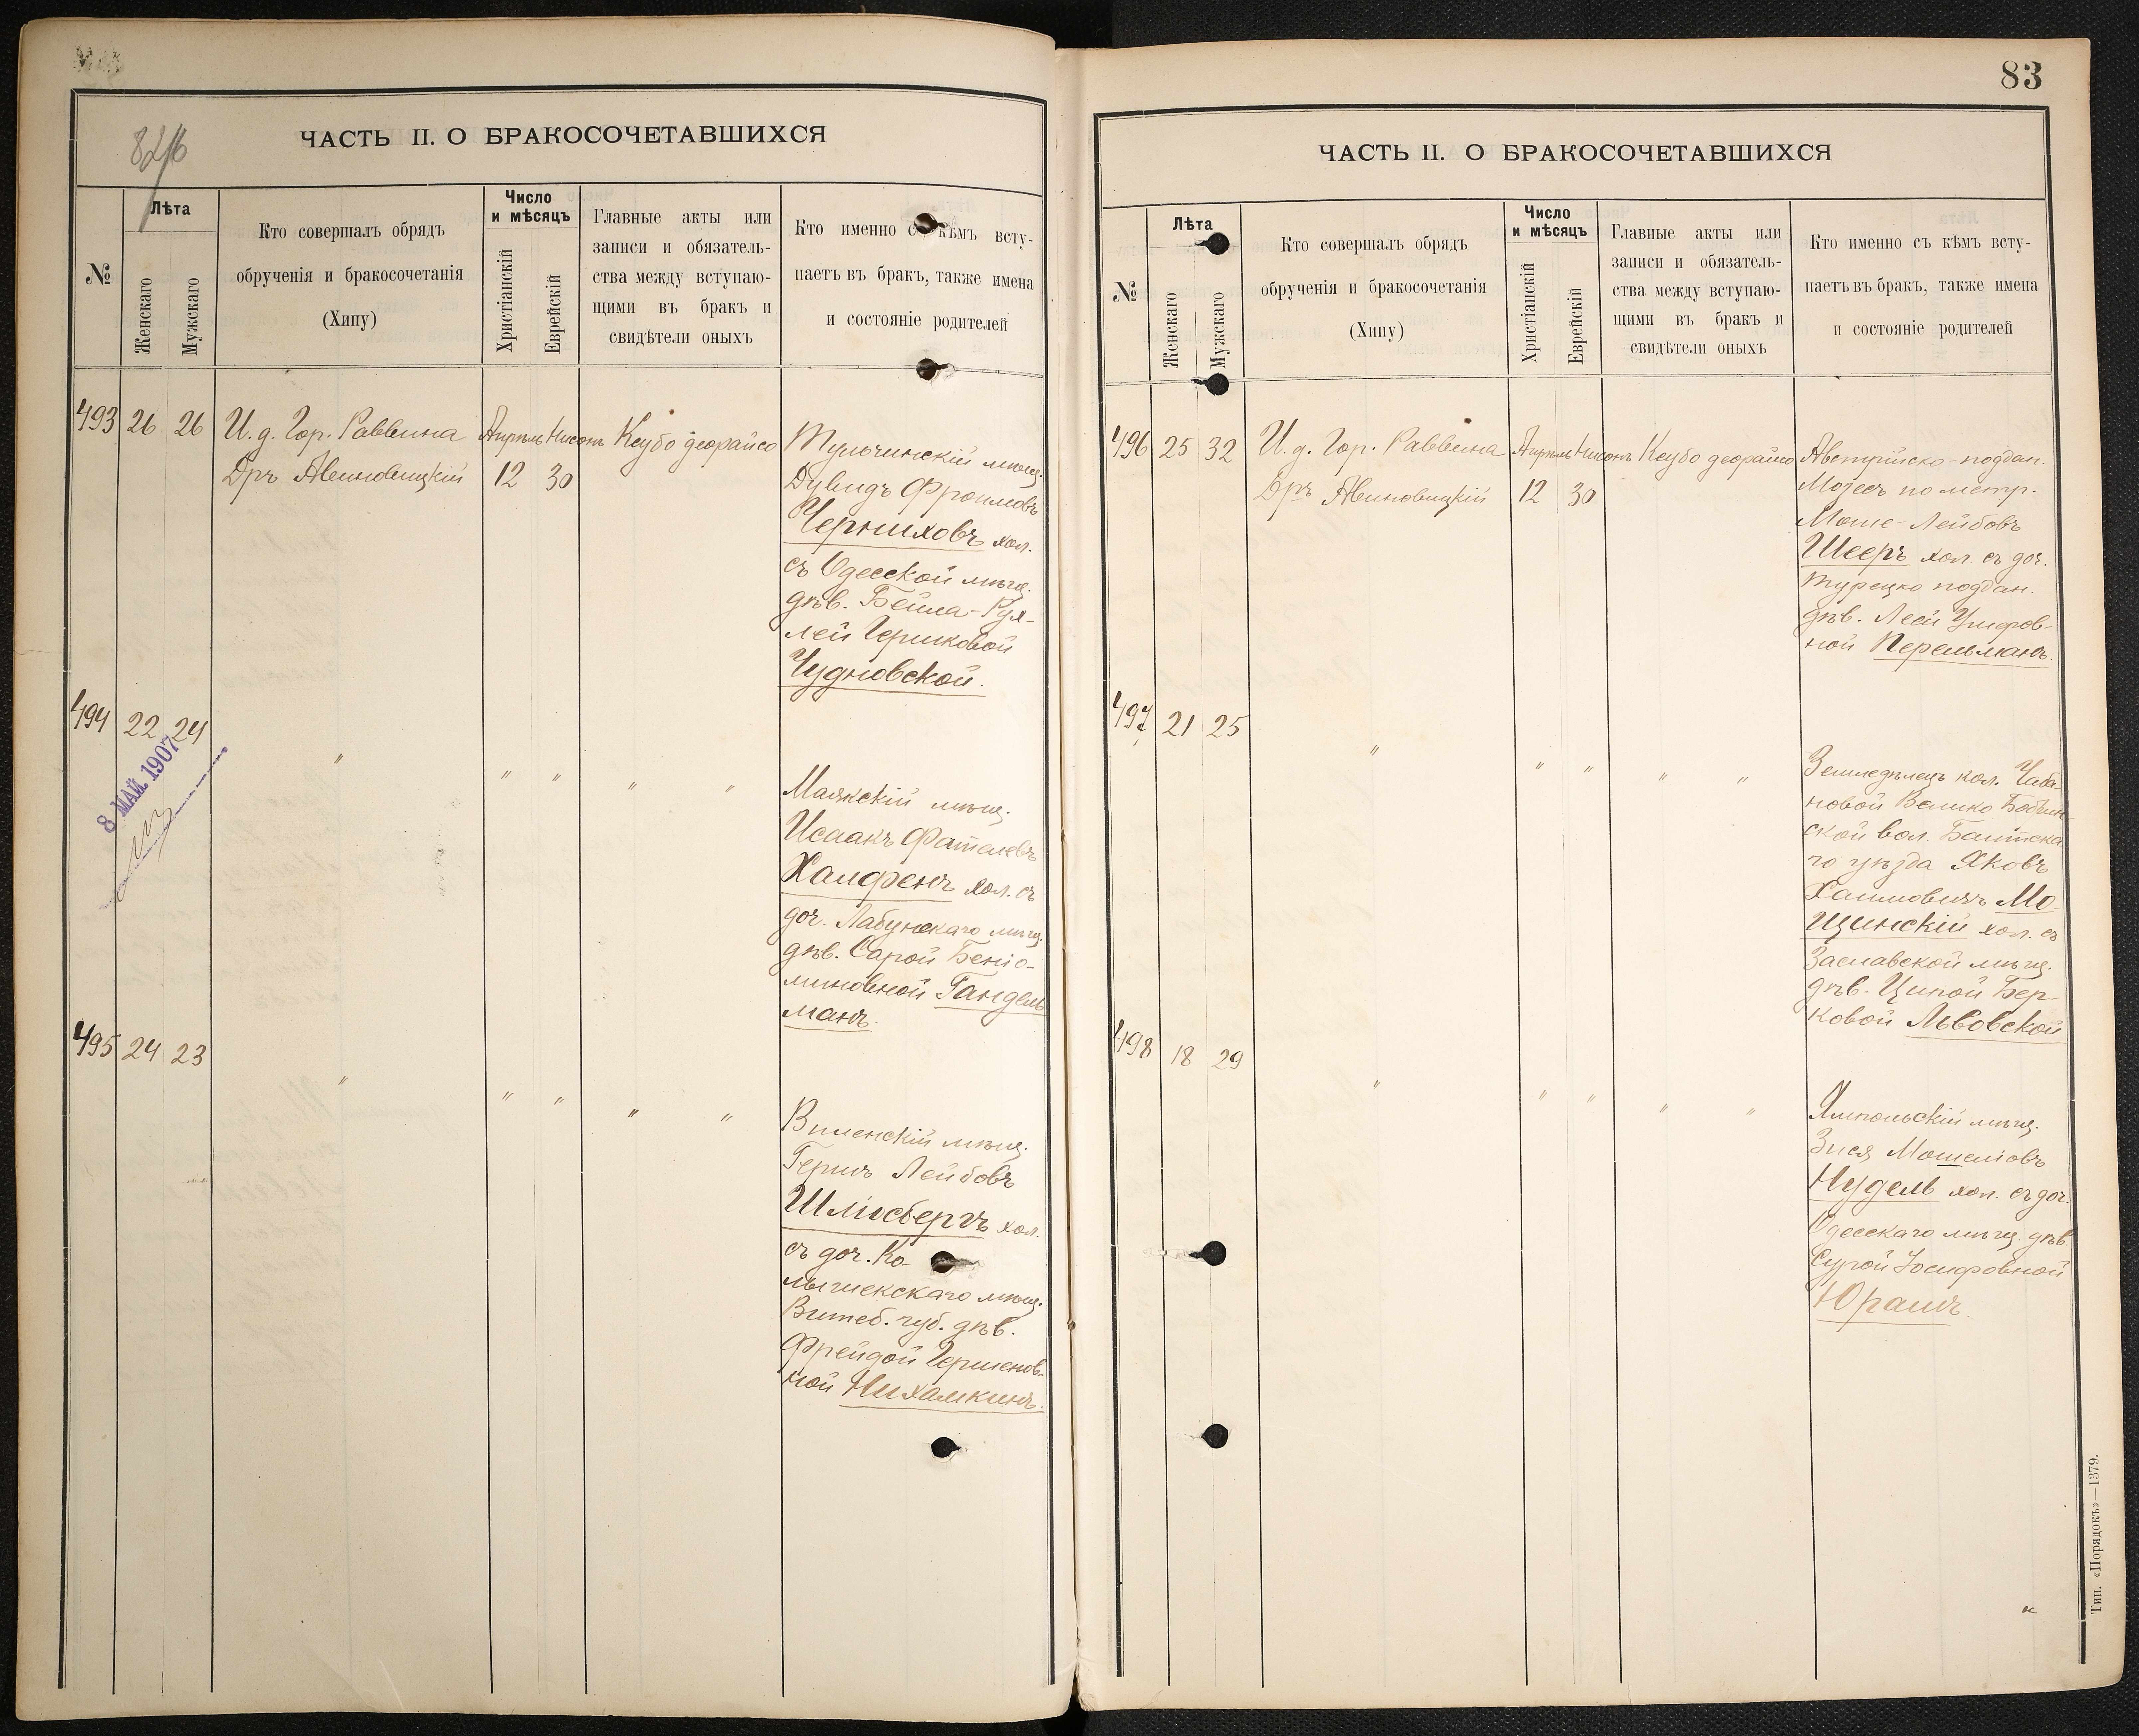 82/б
ЧАСТЬ II. О БРАКОСОЧЕТАВШИХСЯ
№
Лѣта
Женскаго
Мужскаго
Кто совершалъ обрядъ
обрученія и бракосочетанія
(Хипу)
Число
и мѣсяцъ
Христіанскій
Еврейскій
Главные акты или
записи и обязатель-
ства между вступаю-
щими въ бракъ и
свидѣтели оныхъ
Кто именно съ кѣмъ всту-
паетъ въ бракъ, также имена
и состояніе родителей
493 26 26 И. д. Гор. Раввина Апрѣль Нисонъ Ксубо деорайсо
Дръ Авиновицкій 12 30
Тульчинскій мѣщ.
Дувидъ Фроимовъ
Черниховъ хол.
съ Одесской мѣщ.
дѣв. Бейла-Рух-
лей Гершковой
Чудновской.
494 22 24 " " " " "
8 МАЙ 1907
Маякскій мѣщ.
Исаакъ
Халфенъ хол. съ
доч. Лабунскаго мѣщ.
дѣв. Сарой Беніо-
миновной Гандель
манъ.
495 24 23 " " " " "
Виленскій мѣщ.
Гершъ Лейбовъ
Шліосбергъ хол.
съ доч. Ко-
лышскскаго мѣщ.
Витеб. губ. дѣв.
Фрейдой Гершенов-
ной Нихамкинъ.
83
ЧАСТЬ II. О БРАКОСОЧЕТАВШИХСЯ
№
Лѣта
Женскаго
Мужскаго
Кто совершалъ обрядъ
обрученія и бракосочетанія
(Хипу)
Число
и мѣсяцъ
Христіанскій
Еврейскій
Главные акты или
записи и обязатель-
ства между вступаю-
щими въ бракъ и
свидѣтели оныхъ
Кто именно съ кѣмъ всту-
паетъ въ бракъ, также имена
и состояніе родителей
496 25 32 И. д. Гор. Раввина Апрѣль Нисонъ Ксубо деорайсо
Дръ Авиновицкій 12 30
Австрійско-поддан.
Мозесъ по метр.
Моше-Лейбовъ
Шееръ хол. съ доч.
турецко поддан.
дѣв. Леей
ной Перельманъ.
497 21 25 " " " " "
Земледѣлецъ кол. Чаба-
новой Велико
ской вол. Балтска
го уѣзда Яковъ
Хаимовичъ Мо-
щинскій хол. съ
Заславской мѣщ.
дѣв. Ципой Бер-
ковой Львовской
498 18 29 " " " " "
Ямпольскій мѣщ.
Зися
Нудель хол. съ доч.
Одесскаго мѣщ. дѣв.
Сурой Іосифовной
Юрашъ.
Тип. «Порядокъ»—1379.